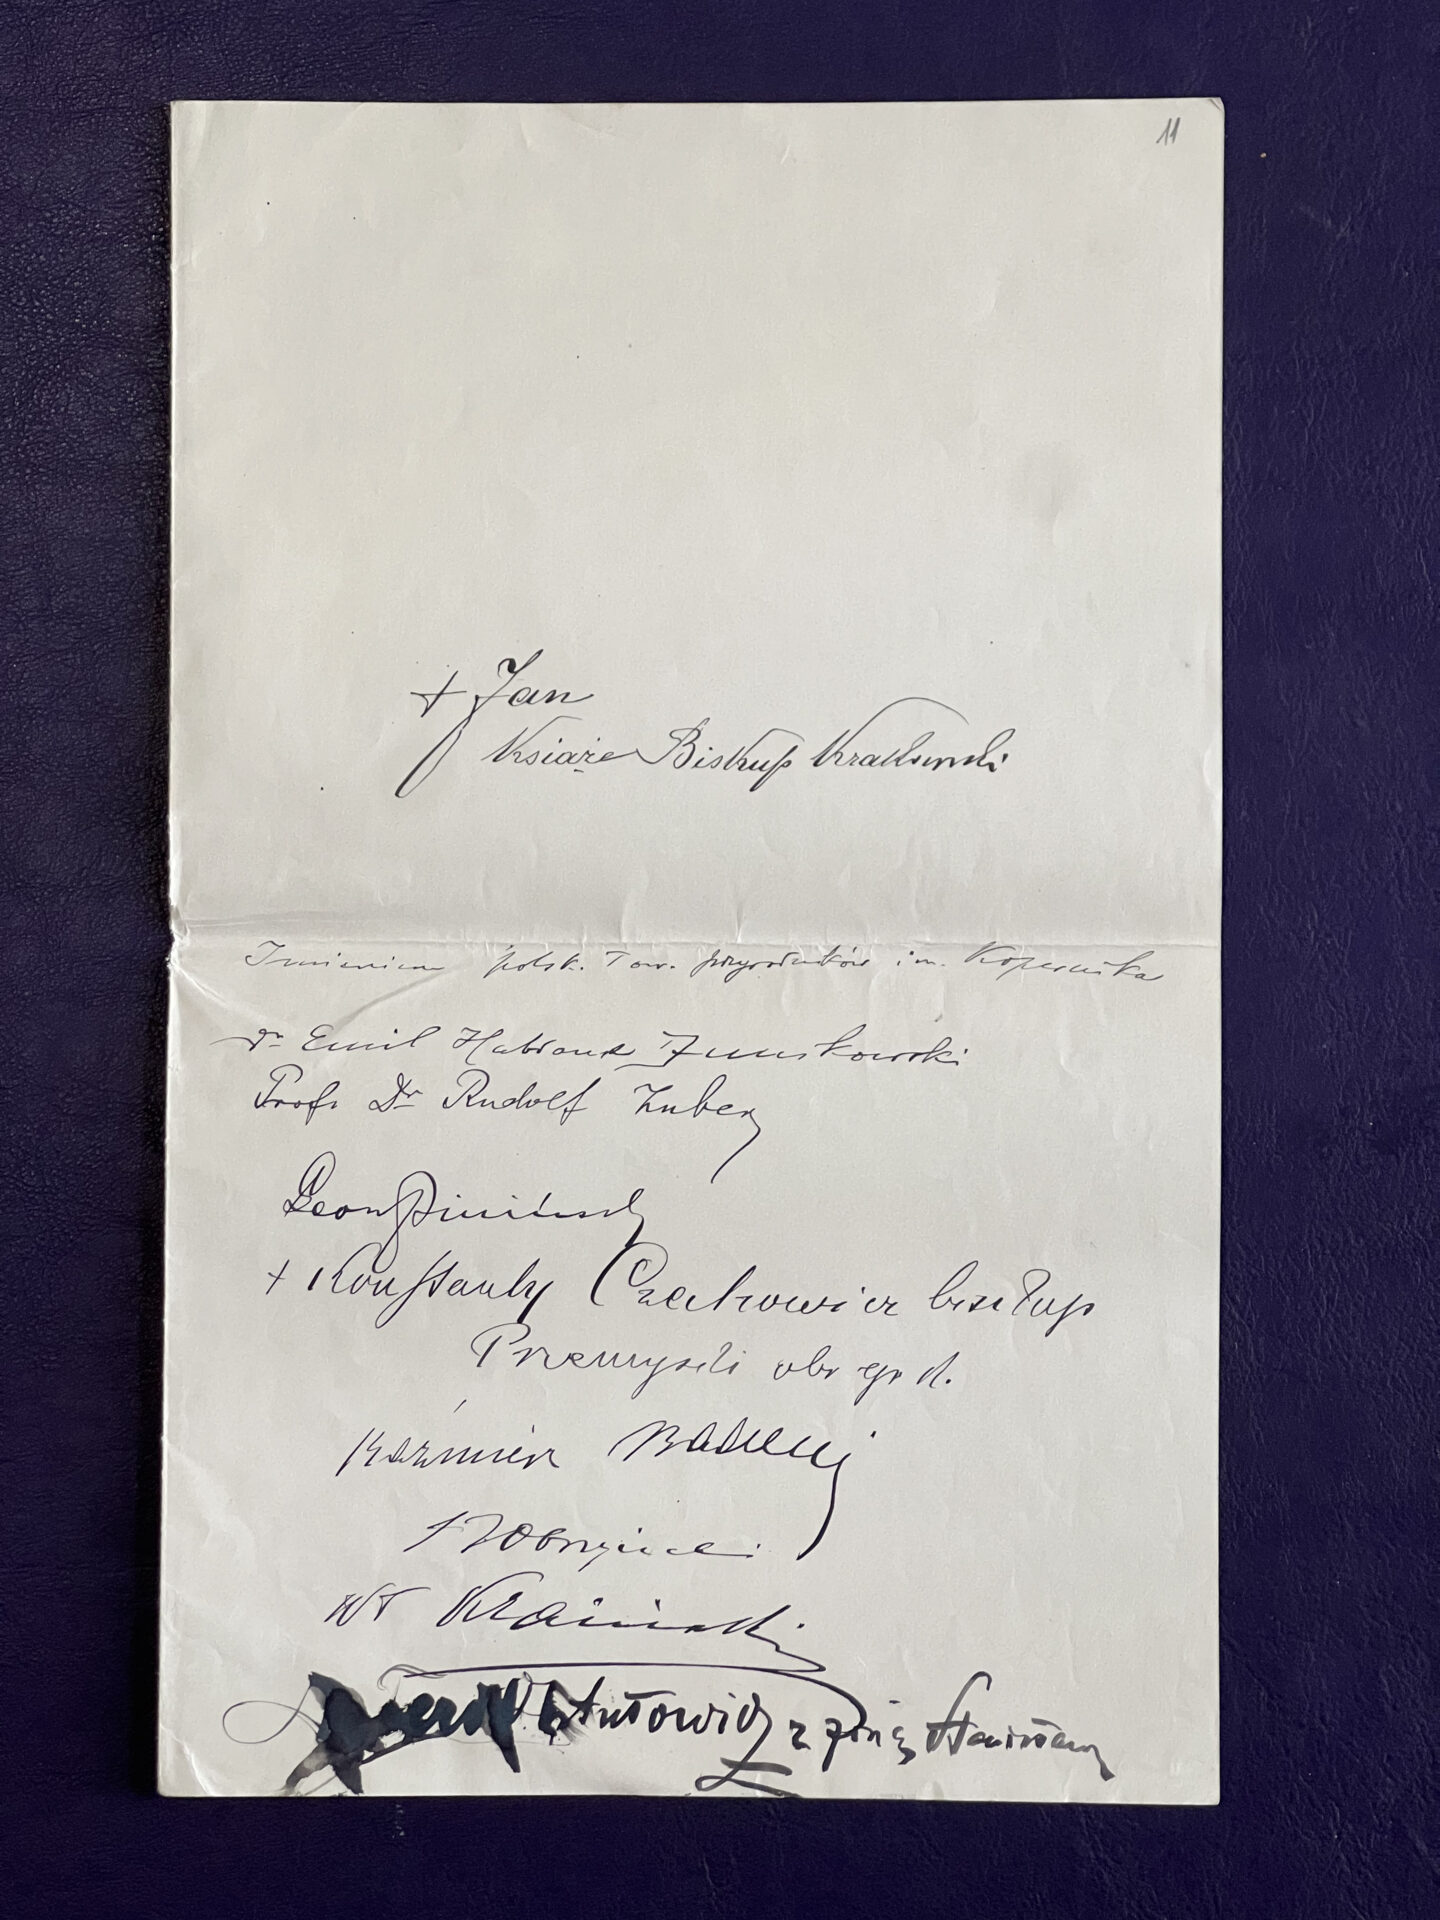 11
+ Jan
Książę Biskup Krakowski
Imieniem polsk. Tow. przyrodników im. Kopernika
Dr Emil Habdank Dunikowski
Prof. Dr Rudolf Zuber
Leon Piniński
+ Konstanty Czechowicz biskup
Przemyski obr gr k.
Kaźmierz Badeni
M Bobrzyński
Wł Kraiński
Antoniewicz z żoną Stanisławą